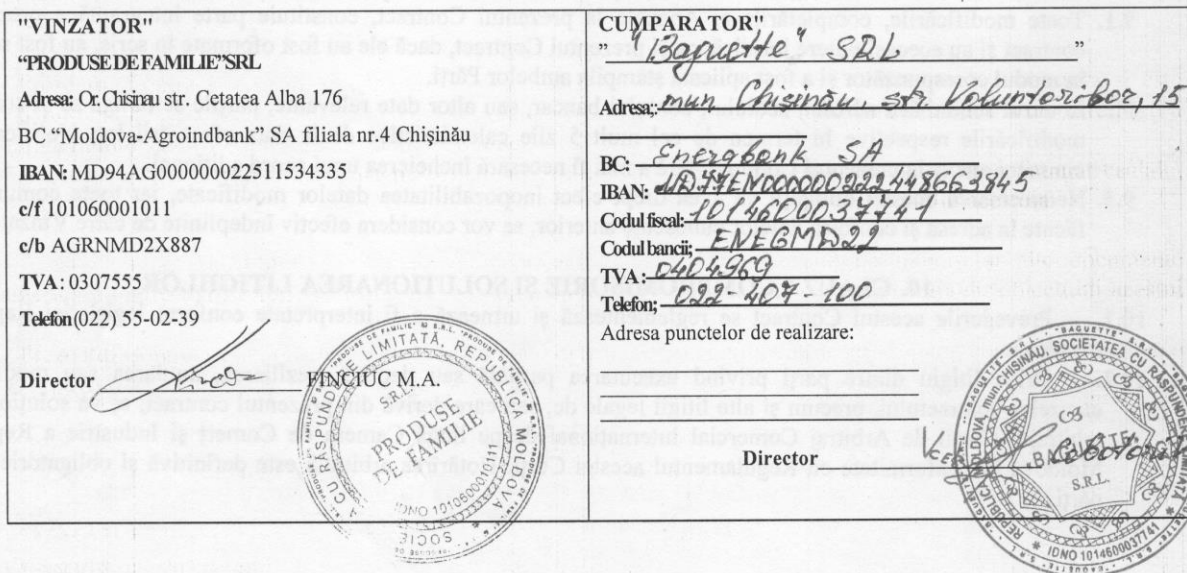 "VINZATOR"
"PRODUSE DE FAMILIE"SRL
Adresa: Or. Chisinau str. Cetatea Alba 176
BC "Moldova-Agroindbank" SA filiala nr.4 Chișinău
IBAN: MD94AG000000022511534335
c/f 1010600010111
c/b AGRNMD2X887
TVA: 0307555
Telefon (022) 55-02-39
Director FINCIUC M.A.
PRODUSE DE FAMILIE
S.R.L.
IDNO 1010600010111
CUMPARATOR"
" "Baguette" SRL "
Adresa: mun Chișinău, str. Voluntarilor, 15
BC: Energbank SA
IBAN:
Codul fiscal: 1014600037741
Codul bancii: ENEGMD22
TVA: 0404969
Telefon: 032-407-100
Adresa punctelor de realizare:
Director
"BAGUETTE" S.R.L.
REPUBLICA MOLDOVA, MUN. CHIȘINĂU, SOCIETATEA CU RĂSPUNDERE
IDNO 1014600037741